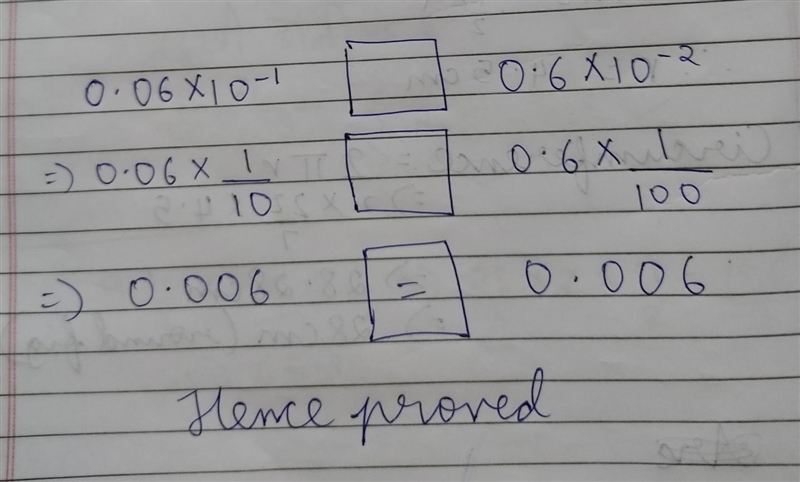 0.06 × 10⁻¹ □ 0.6 × 10⁻²
⇒ 0.06 × 1/10 □ 0.6 × 1/100
⇒ 0.006 = 0.006
Hence proved